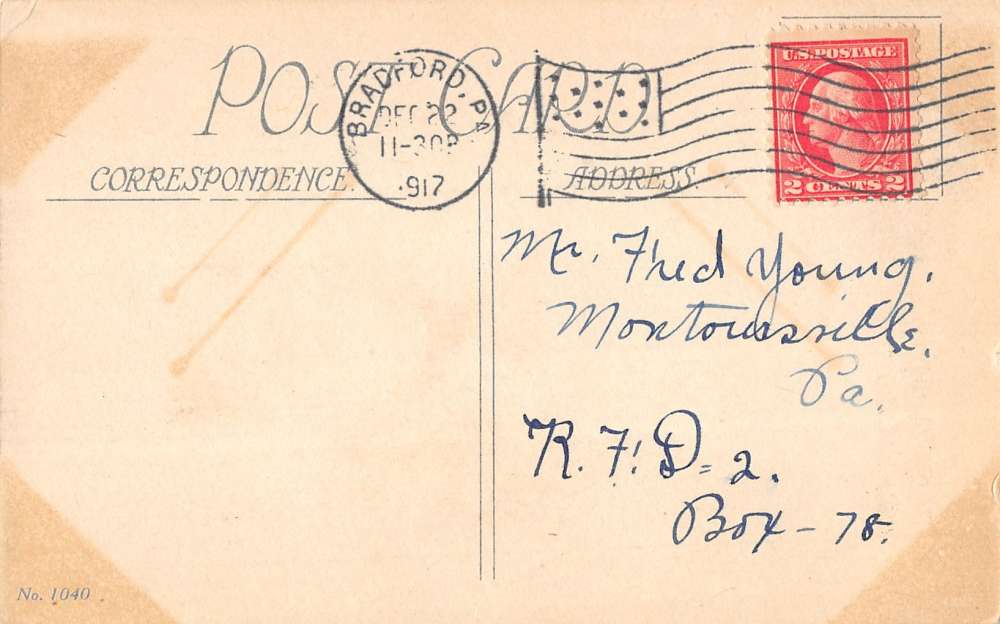 POST CARD
BRADFORD, PA
DEC 22
11-30P
1917
U.S. POSTAGE
2 CENTS 2
CORRESPONDENCE.
ADDRESS.
Mr. Fred Young.
Montoursville,
Pa.
R. F. D= 2.
Box - 78.
No. 1040